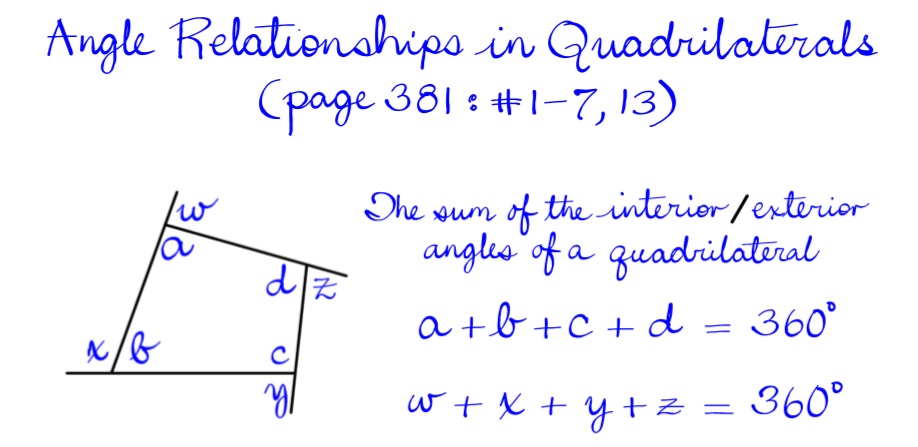 Angle Relationships in Quadrilaterals
(page 381 : #1-7, 13)
The sum of the interior/exterior
angles of a quadrilateral
a + b + c + d = 360°
w + x + y + z = 360°
w
a
d z
x b
c
y